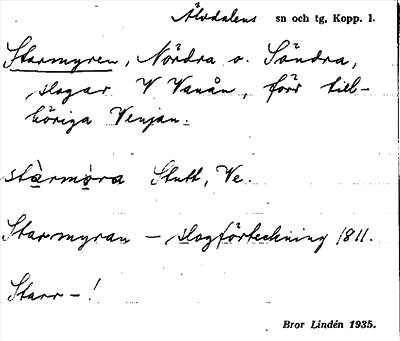 Älvdalens sn och tg, Kopp. l.
Starmyren, Nördra o. Söndra,
slogar V Vanån, förr till-
höriga Venjan.
stàrmỳra Stutt, Ve.
Starmyran – slogförteckning 1811.
Starr-!
Bror Lindén 1935.